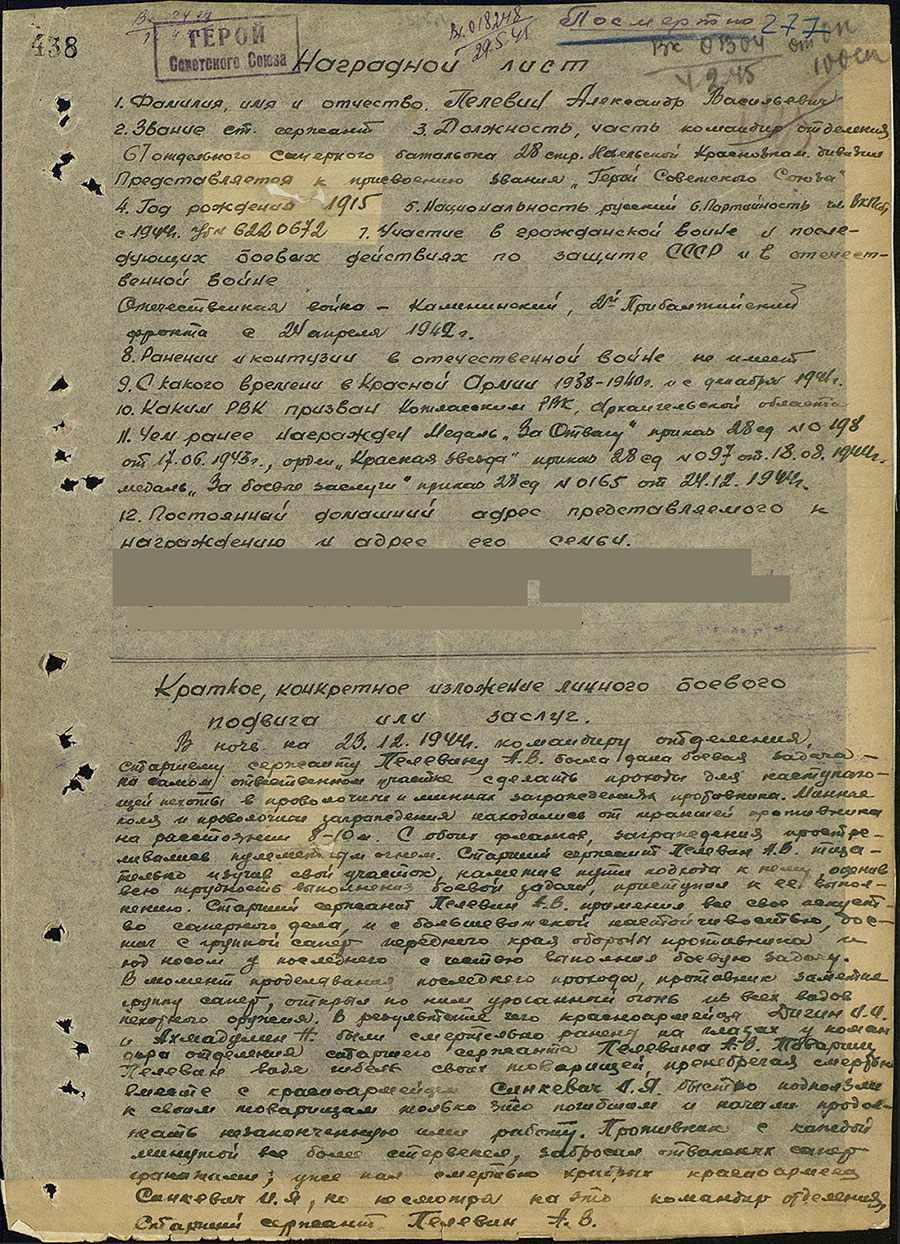 438
Вх. 018248
29.5.45
Посмертно 277
ГЕРОЙ
Советского Союза
Вх 0304 от
4 2 45
Наградной лист
1. Фамилия, имя и отчество. Пелевин Александр Васильевич
2. Звание ст. сержант 3. Должность, часть командир отделения
67 отдельного саперного батальона 28 стр. Невельской Краснознам. дивизии
Представляется к присвоению звания „Герой Советского Союза"
4. Год рождения 1915 5. Национальность русский 6. Партийность чл. ВКП(б)
с 1944г. 6220672 7. Участие в гражданской войне и после-
дующих боевых действиях по защите СССР и в отечест-
венной войне
Отечественная война – Калининский, 2й Прибалтийский
фронта с 24 апреля 1942г.
8. Ранении и контузии в отечественной войне не имеет
9. С какого времени в Красной Армии 1938-1940г. и с декабря 1941г.
10. Каким РВК призван Котласским РВК, Архангельской области
11. Чем ранее награжден Медаль „За Отвагу" приказ 28 сд N 0198
от 17.06.1943г., орден „Красная звезда" приказ 28 сд N 097 от 18.08.1944г.
медаль „За боевые заслуги" приказ 28 сд N 0165 от 24.12.1944г.
12. Постоянный домашний адрес представляемого к
награждению и адрес его семьи.
Краткое, конкретное изложение личного боевого
подвига или заслуг.
В ночь на 23.12.1944г. командиру отделения,
старшему сержанту Пелевину А.В. была дана боевая задача –
на самом ответственном участке сделать проходы для наступаю-
щей пехоты в проволочных и минных заграждениях противника. Минные
поля и проволочные заграждения находились от траншей противника
на расстоянии 8-10 м. С обоих флангов, заграждения простре-
ливались пулеметным огнем. Старший сержант Пелевин А.В. тща-
тельно изучив свой участок, наметив пути подхода к нему, оценив
всю трудность выполнения боевой задачи, приступил к ее выпол-
нению. Старший сержант Пелевин А.В. применив все свое искусст-
во саперного дела, и с большевистской настойчивостью, дос-
тиг с группой сапер переднего края обороны противника и
под носом у последнего с честью выполнял боевую задачу.
В момент проделывания последнего прохода, противник заметив
группу сапер, открыл по ним ураганный огонь из всех видов
пехотного оружия. В результате чего красноармейцы Дигин И.И.
и Ахмадулин Н. были смертельно ранены на глазах у коман
дира отделения старшего сержанта Пелевина А.В. Товарищ
Пелевин видя гибель своих товарищей, пренебрегая смертью
вместе с красноармейцем Синкевич И.Я. быстро подползли
к своим товарищам только что погибшим и начали продол-
жать незаконченную ими работу. Противник с каждой
минутой все более стервенел, забросал отважных сапер
гранатами; уже пал смертью храбрых красноармеец
Синкевич И.Я, но несмотря на это командир отделения,
Старший сержант Пелевин А.В.